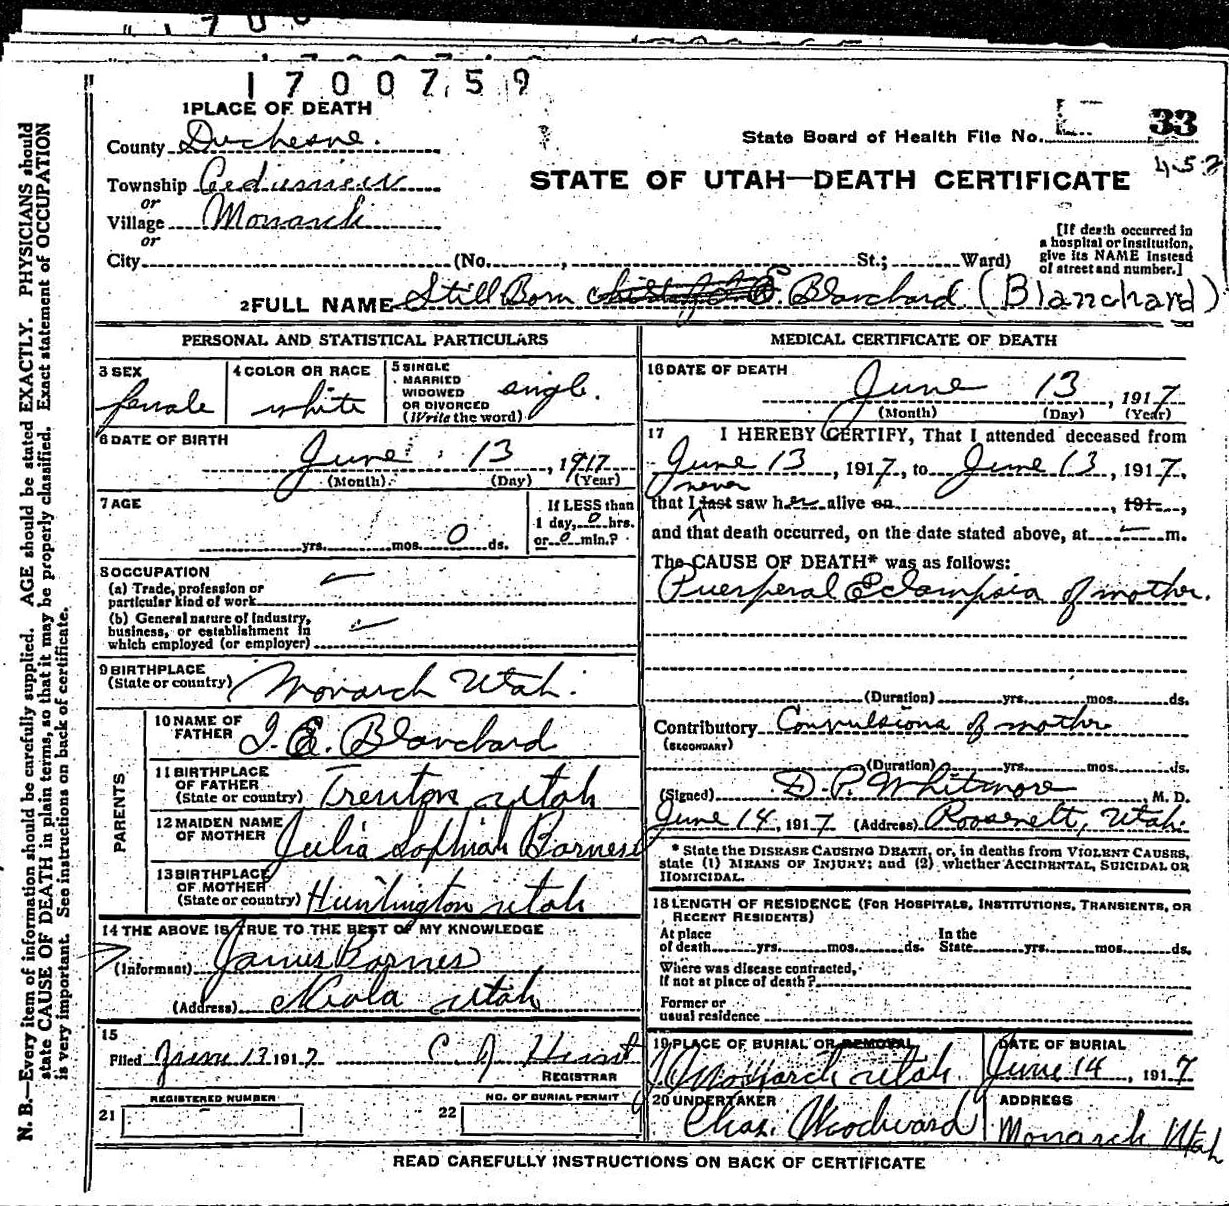 1700759
1 PLACE OF DEATH
County Duchesne.
State Board of Health File No. 33
452
Township
or
STATE OF UTAH—DEATH CERTIFICATE
Village Monarch
or
City (No. , St.; Ward)
[If death occurred in
a hospital or institution,
give its NAME instead
of street and number.]
2 FULL NAME Still Born Blanchard (Blanchard)
PERSONAL AND STATISTICAL PARTICULARS
3 SEX female
4 COLOR OR RACE white
5 SINGLE
MARRIED
WIDOWED
OR DIVORCED
(Write the word) single.
6 DATE OF BIRTH
June 13, 1917
(Month) (Day) (Year)
7 AGE
If LESS than
1 day, 0 hrs.
yrs. mos. 0 ds. or 0 min.?
8 OCCUPATION
(a) Trade, profession or
particular kind of work
(b) General nature of Industry,
business, or establishment in
which employed (or employer)
9 BIRTHPLACE
(State or country) Monarch Utah.
PARENTS
10 NAME OF
FATHER J. E. Blanchard
11 BIRTHPLACE
OF FATHER
(State or country) Trenton Utah
12 MAIDEN NAME
OF MOTHER Julia Sophiah Barnes
13 BIRTHPLACE
OF MOTHER
(State or country) Huntington Utah
14 THE ABOVE IS TRUE TO THE BEST OF MY KNOWLEDGE
(Informant) James Barnes
(Address) Neola Utah
15
Filed June 17 1917 C. J. Hunt
REGISTRAR
REGISTERED NUMBER
21
NO. OF BURIAL PERMIT
22
MEDICAL CERTIFICATE OF DEATH
16 DATE OF DEATH
June 13, 1917
(Month) (Day) (Year)
17 I HEREBY CERTIFY, That I attended deceased from
June 13, 1917, to June 13, 1917.
never
that I last saw her alive on , 191 ,
and that death occurred, on the date stated above, at m.
The CAUSE OF DEATH* was as follows:
Puerperal Eclampsia of mother.
(Duration) yrs. mos. ds.
Contributory Convulsions of mother
(SECONDARY)
(Duration) yrs. mos. ds.
(Signed) D. P. Whitmore M. D.
June 14, 1917 (Address) Roosevelt, Utah.
* State the DISEASE CAUSING DEATH, or, in deaths from VIOLENT CAUSES,
state (1) MEANS OF INJURY; and (2) whether ACCIDENTAL, SUICIDAL OR
HOMICIDAL.
18 LENGTH OF RESIDENCE (FOR HOSPITALS, INSTITUTIONS, TRANSIENTS, OR
RECENT RESIDENTS)
At place In the
of death yrs. mos. ds. State yrs. mos. ds.
Where was disease contracted,
if not at place of death?
Former or
usual residence
19 PLACE OF BURIAL OR REMOVAL
Monarch Utah
DATE OF BURIAL
June 14, 1917
20 UNDERTAKER
Chas. Woodward
ADDRESS
Monarch Utah
READ CAREFULLY INSTRUCTIONS ON BACK OF CERTIFICATE
N. B.—Every item of information should be carefully supplied. AGE should be stated EXACTLY. PHYSICIANS should
state CAUSE OF DEATH in plain terms, so that it may be properly classified. Exact statement of OCCUPATION
is very important. See instructions on back of certificate.